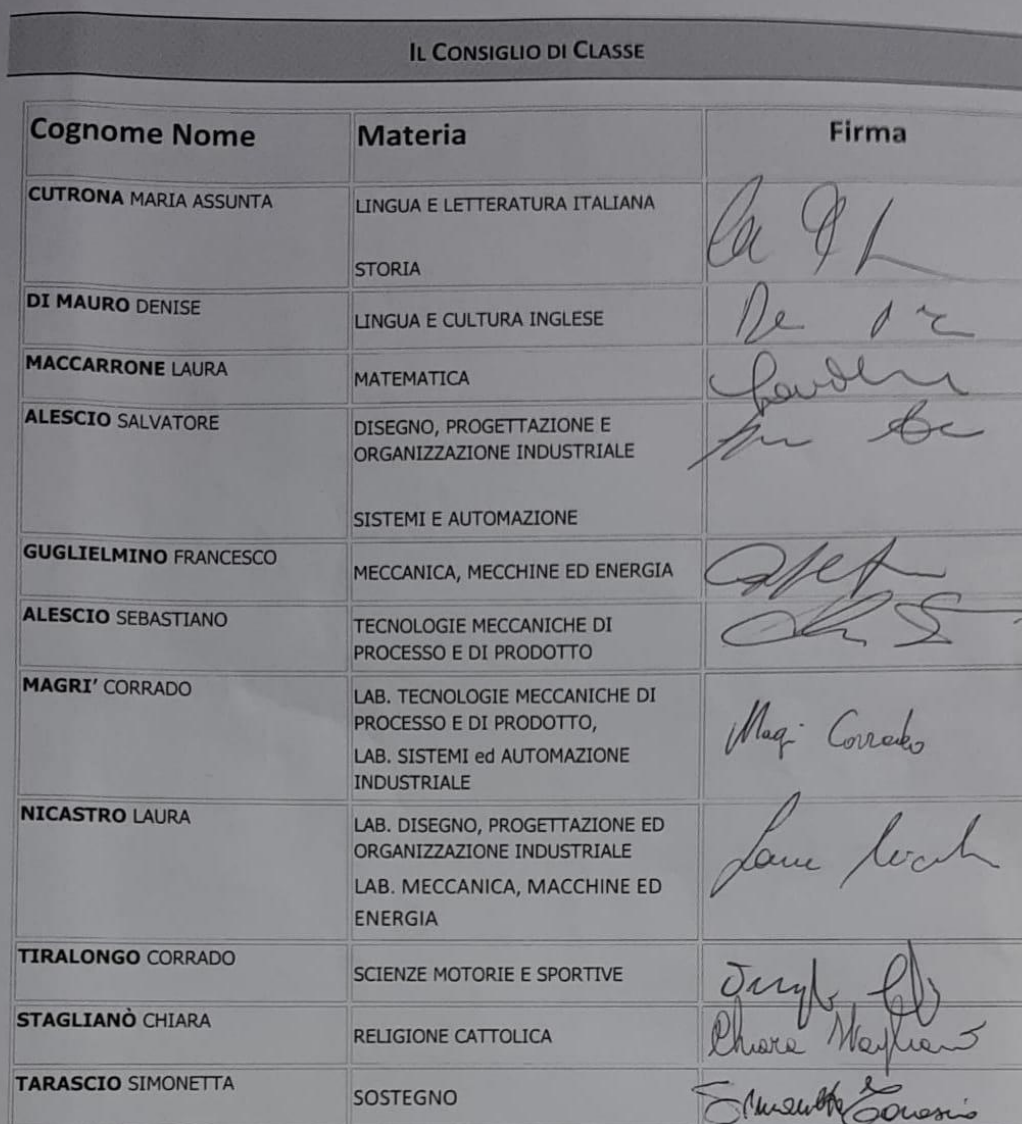 IL CONSIGLIO DI CLASSE
Cognome Nome Materia Firma
CUTRONA MARIA ASSUNTA LINGUA E LETTERATURA ITALIANA
STORIA
DI MAURO DENISE LINGUA E CULTURA INGLESE
MACCARRONE LAURA MATEMATICA
ALESCIO SALVATORE DISEGNO, PROGETTAZIONE E
ORGANIZZAZIONE INDUSTRIALE
SISTEMI E AUTOMAZIONE
GUGLIELMINO FRANCESCO MECCANICA, MECCHINE ED ENERGIA
ALESCIO SEBASTIANO TECNOLOGIE MECCANICHE DI
PROCESSO E DI PRODOTTO
MAGRI' CORRADO LAB. TECNOLOGIE MECCANICHE DI
PROCESSO E DI PRODOTTO,
Corrado
LAB. SISTEMI ed AUTOMAZIONE
INDUSTRIALE
NICASTRO LAURA LAB. DISEGNO, PROGETTAZIONE ED
ORGANIZZAZIONE INDUSTRIALE
LAB. MECCANICA, MACCHINE ED
ENERGIA
TIRALONGO CORRADO SCIENZE MOTORIE E SPORTIVE
STAGLIANÒ CHIARA RELIGIONE CATTOLICA Chiara Staglianò
TARASCIO SIMONETTA SOSTEGNO Simonetta Tarascio